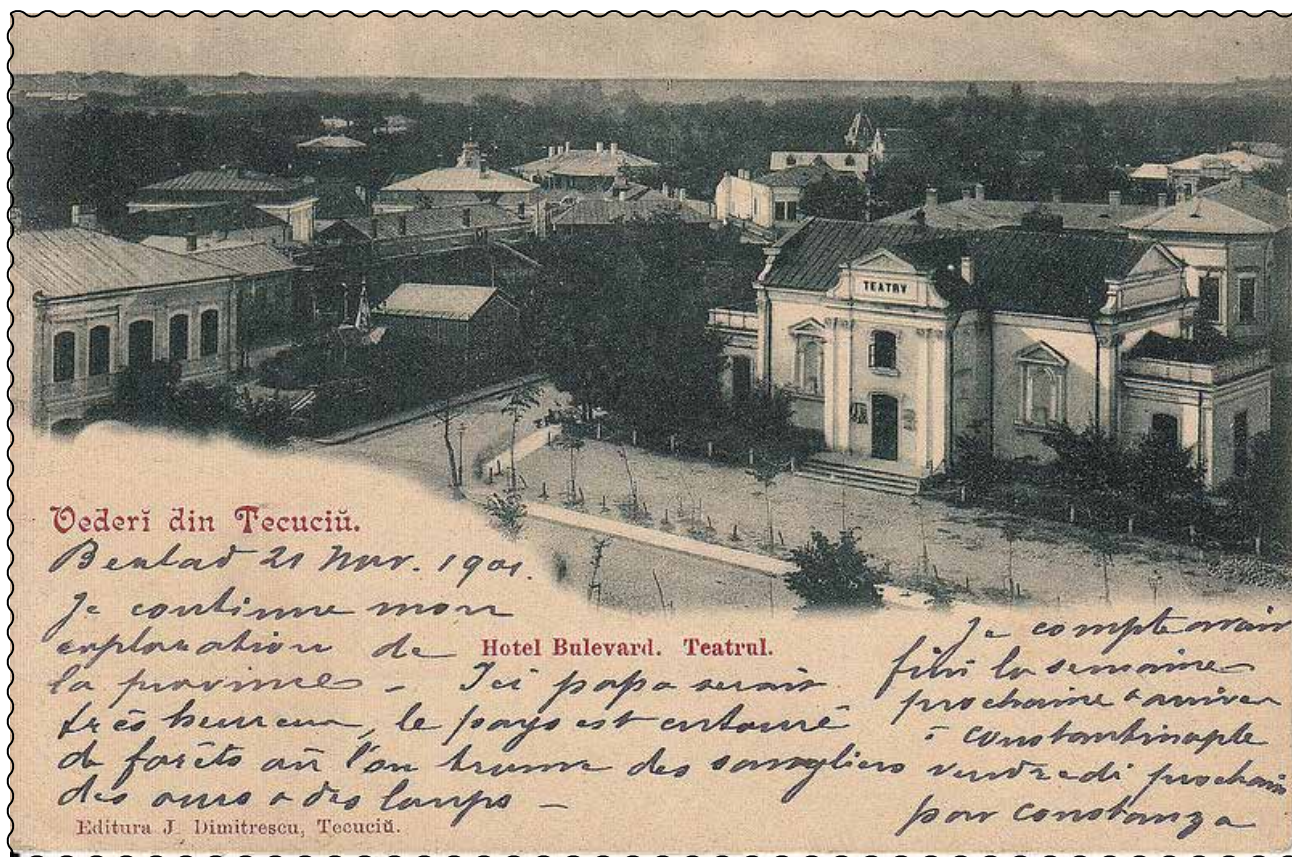 TEATRU
Vederĭ din Tecuciŭ.
Berlad 21 Nov. 1901.
Je continue mon
exploration de
la province – Ici papa serait
très heureux, le pays est entouré
de forêts où l'on trouve des sangliers
des ours & des loups –
Hotel Bulevard. Teatrul.
Je compte avoir
fini la semaine
prochaine & arriver
à Constantinople
vendredi prochain
par Constanza
Editura J. Dimitrescu, Tecuciŭ.